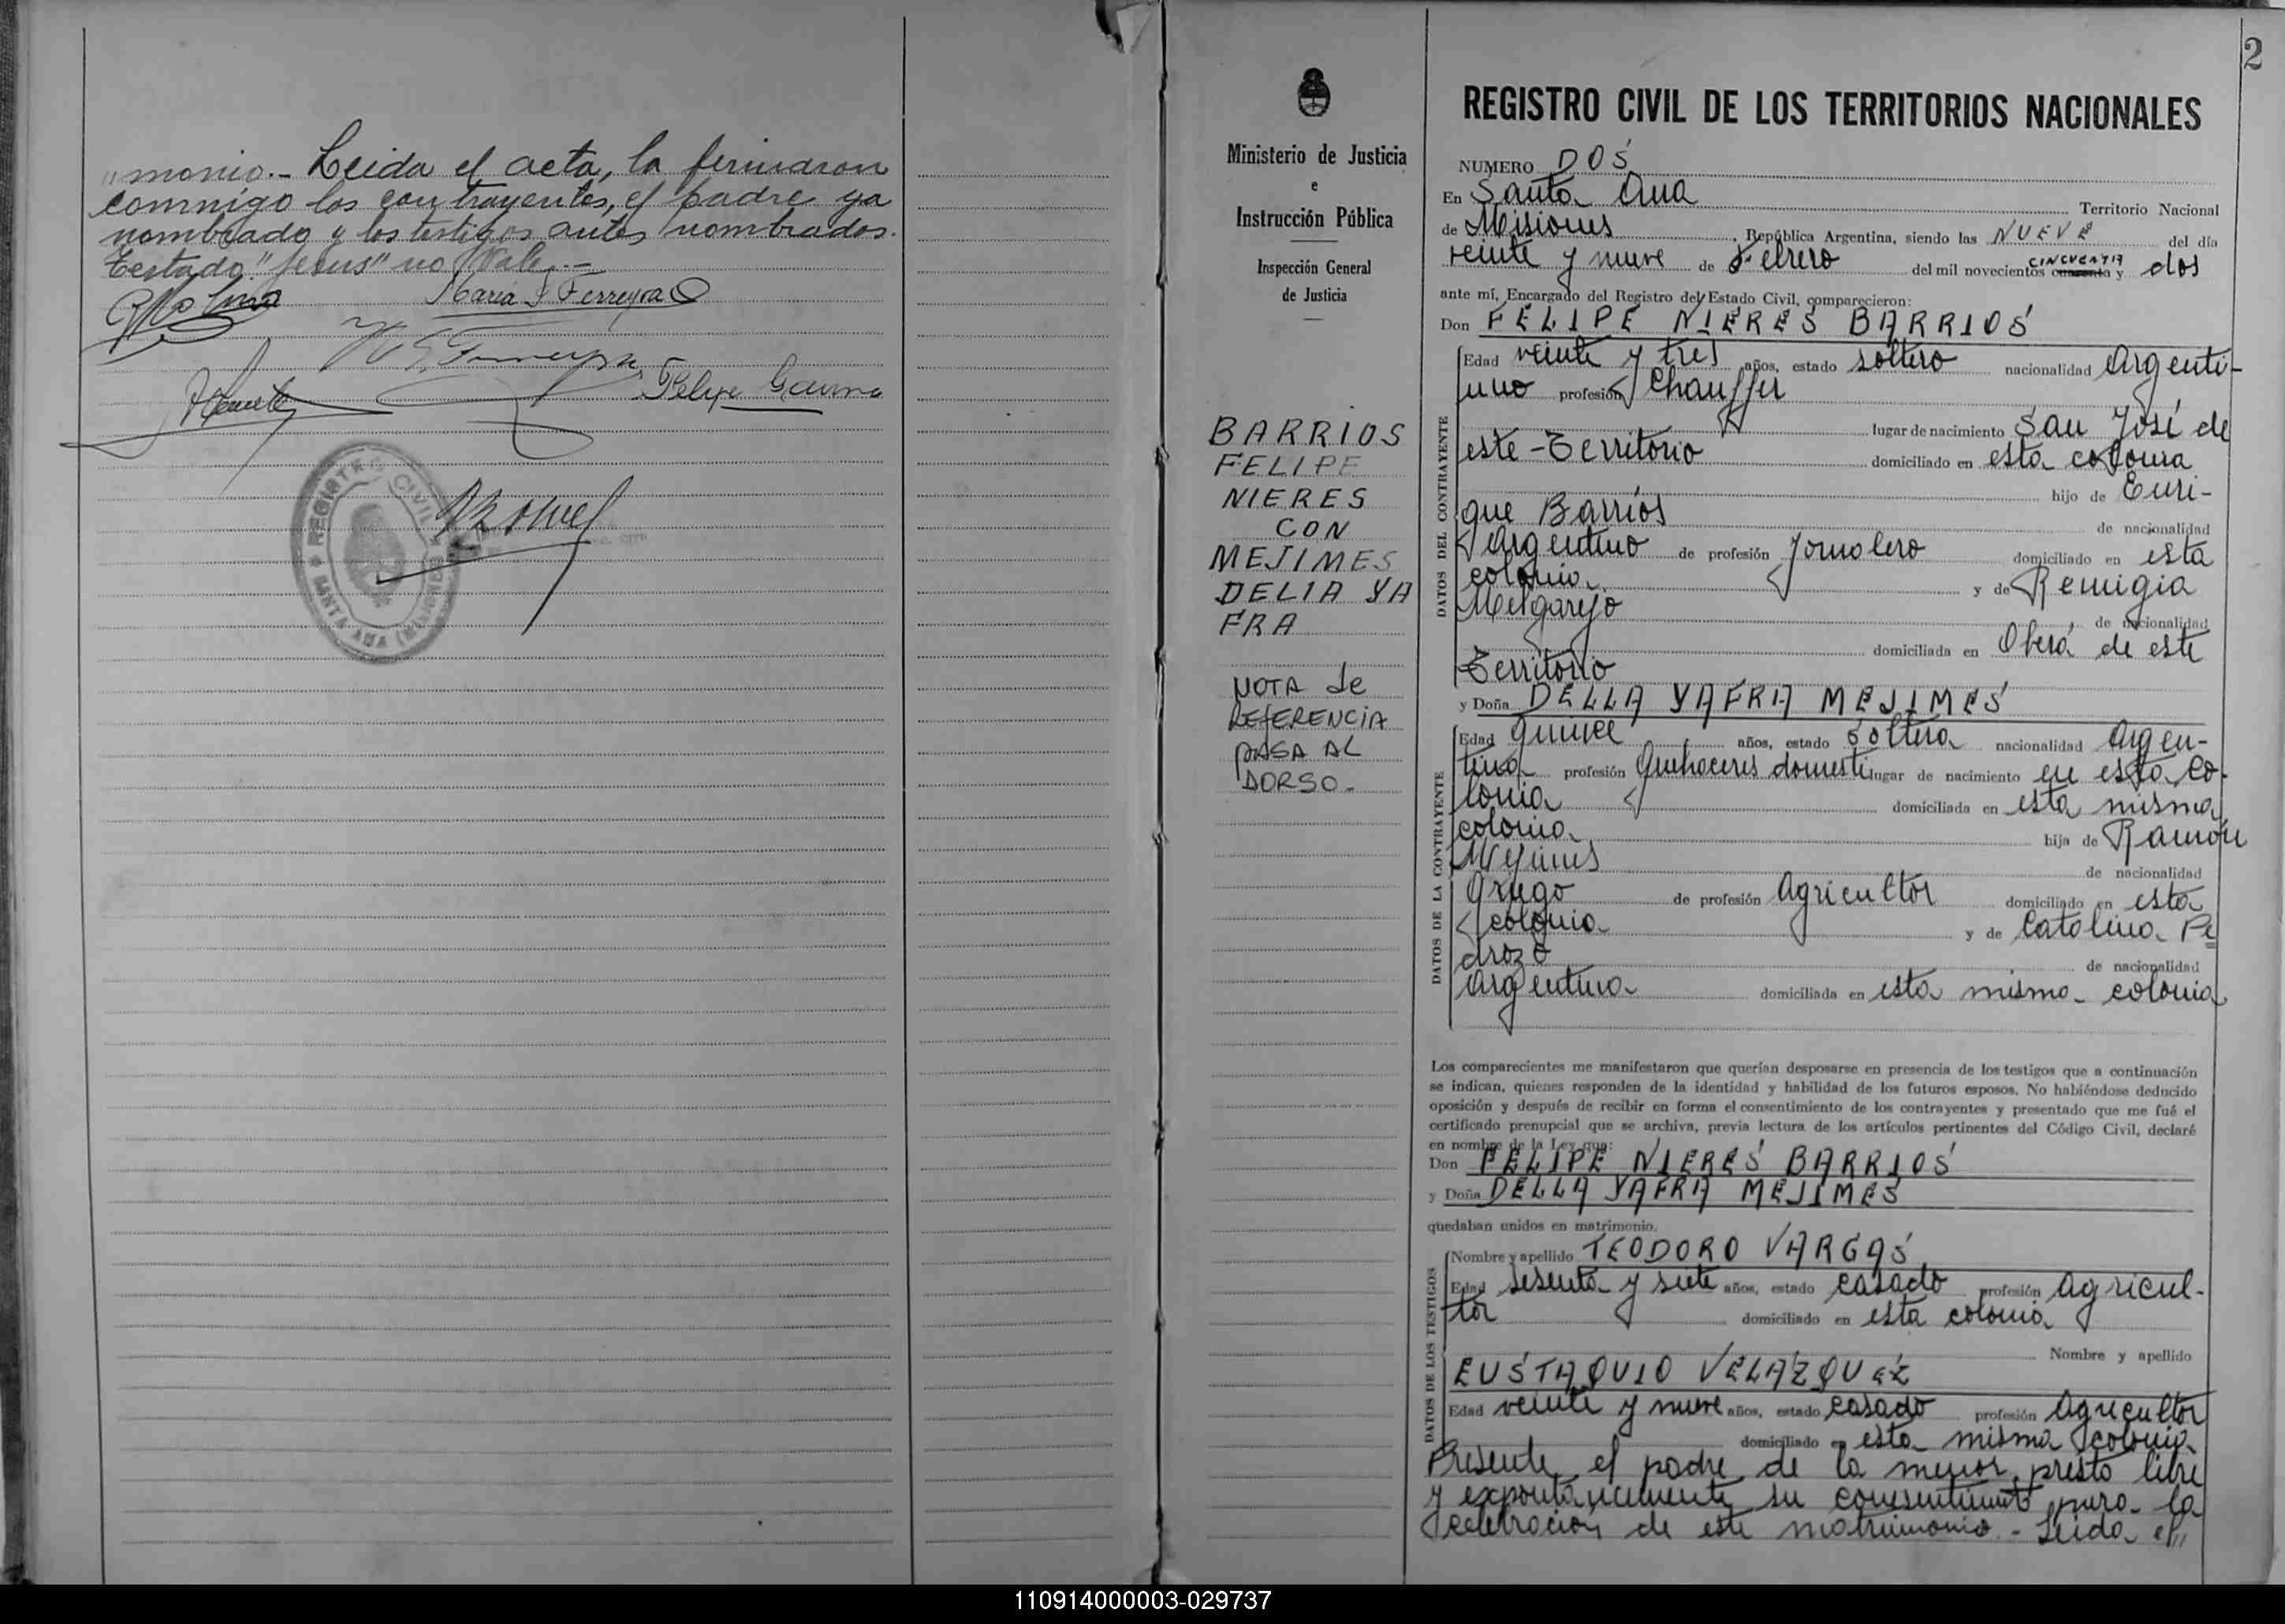 "monio.- Leida el acta, la firmaron
conmigo los contrayentes, el padre ya
nombrado y los testigos antes nombrados.
Testado "Jesus" no Vale.-
Maria F Ferreyra
Felipe Gauna
REGISTRO CIVIL
SANTA ANA (MISIONES)
2
Ministerio de Justicia
e
Instrucción Pública
Inspección General
de Justicia
BARRIOS
FELIPE
NIERES
CON
MEJIMES
DELIA YA
FRA
NOTA de
REFERENCIA
PASA AL
DORSO.-
REGISTRO CIVIL DE LOS TERRITORIOS NACIONALES
NUMERO DOS
En Santa Ana Territorio Nacional
de Misiones, República Argentina, siendo las NUEVE del día
veinte y nueve de Febrero del mil novecientos cuarenta CINCUENTA y dos
ante mí, Encargado del Registro del Estado Civil, comparecieron:
Don FELIPE NIERES BARRIOS
DATOS DEL CONTRAYENTE
Edad veinte y tres años, estado soltero nacionalidad Argenti-
no profesión Chauffer
lugar de nacimiento San José de
este Territorio domiciliado en esta colonia
hijo de Enri-
que Barrios de nacionalidad
Argentino de profesión Jornalero domiciliado en esta
colonia y de Remigia
Melgarejo de nacionalidad
domiciliada en Oberá de este
Territorio
y Doña DELLA YAFRA MEJIMES
DATOS DE LA CONTRAYENTE
Edad quince años, estado soltera nacionalidad Argen-
tina profesión Quehaceres domesti lugar de nacimiento en esta Co-
lonia domiciliada en esta misma
colonia hija de Ramón
Mejimes de nacionalidad
Griego de profesión Agricultor domiciliado en esta
colonia y de Catalina Pe
drozo de nacionalidad
Argentina domiciliada en esta misma colonia
Los comparecientes me manifestaron que querían desposarse en presencia de los testigos que a continuación
se indican, quienes responden de la identidad y habilidad de los futuros esposos. No habiéndose deducido
oposición y después de recibir en forma el consentimiento de los contrayentes y presentado que me fué el
certificado prenupcial que se archiva, previa lectura de los artículos pertinentes del Código Civil, declaré
en nombre de la Ley que:
Don FELIPE NIERES BARRIOS
y Doña DELLA YAFRA MEJIMES
quedaban unidos en matrimonio.
DATOS DE LOS TESTIGOS
Nombre y apellido TEODORO VARGAS
Edad sesenta y siete años, estado casado profesión Agricul-
tor domiciliado en esta colonia
Nombre y apellido
EUSTAQUIO VELAZQUEZ
Edad veinte y nueve años, estado casado profesión Agricultor
domiciliado en esta misma colonia
Presente el padre de la menor, presto libre
y expontaneamente su consentimiento para la
celebracion de este matrimonio.- Leida el"
110914000003-029737